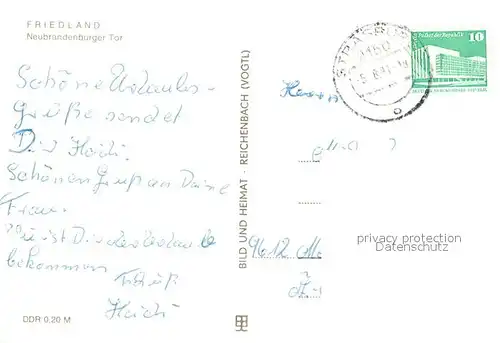 FRIEDLAND
Neubrandenburger Tor
Schöne Urlaubs-
Grüße sendet
Dir Heidi.
Schönen Gruß an Deine
Frau.
ist Dir der Urlaub
bekommen
Heidi
DDR 0,20 M
BILD UND HEIMAT · REICHENBACH (VOGTL)
STRASBURG
10
Palast der Republik
Herrn
9612 M
privacy protection
Datenschutz